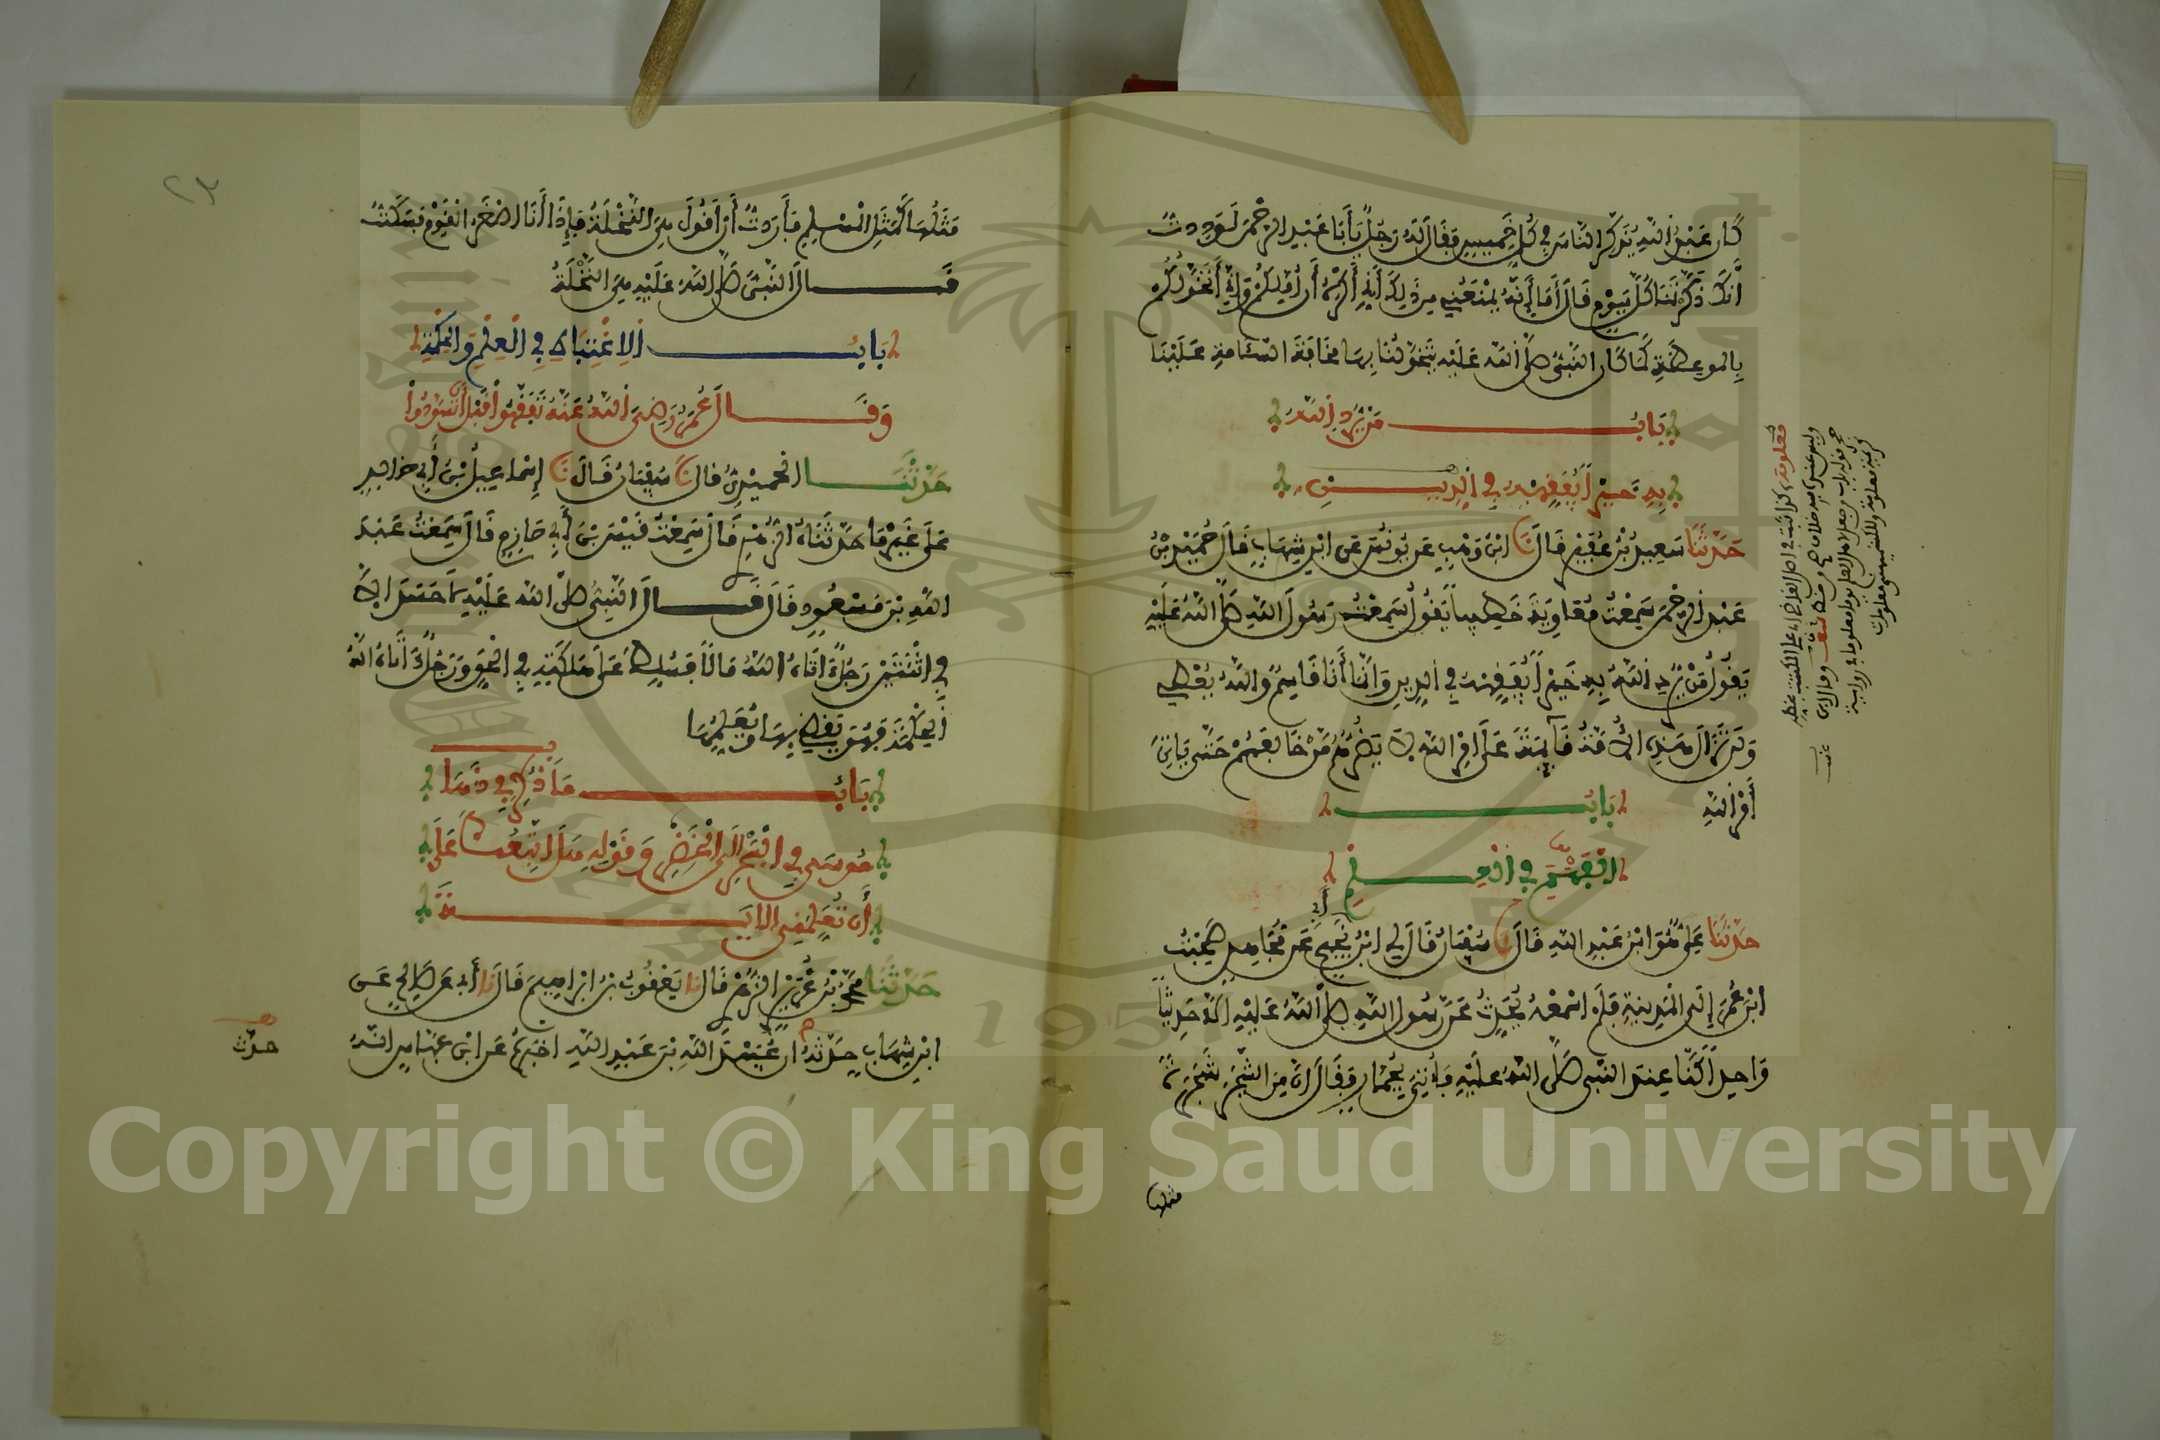 كان عبد الله يذكر الناس في كل خميس فقال له رجل يا أبا عبد الرحمن لوددت
أنك ذكرتنا كل يوم قال أما إنه يمنعني من ذلك أني أكره أن أملكم وإني أتخولكم
بالموعظة كما كان النبي صلى الله عليه يتخولنا بها مخافة السئامة علينا
باب من يرد الله
به خيرا يفقهه في الدين
حدثنا سعيد بن عفير قال نا ابن وهب عن يونس عن ابن شهاب قال حميد بن
عبد الرحمن سمعت معاوية خطيبا يقول سمعت رسول الله صلى الله عليه
يقول من يرد الله به خيرا يفقهه في الدين وإنما أنا قاسم والله يعطي
ولن تزال هذه الأمة قائمة على أمر الله لا يضرهم من خالفهم حتى يأتي
أمر الله
باب
الفهم في العلم
حدثنا علي هو ابن عبد الله قال نا سفيان قال لي ابن أبي نجيح عن مجاهد صحبت
ابن عمر إلى المدينة فلم أسمعه يحدث عن رسول الله صلى الله عليه إلا حديثا
واحدا كنا عند النبي صلى الله عليه فأتي بجمار فقال إن من الشجر شجرة
مثلها
مثلها كمثل المسلم فأردت أن أقول هي النخلة فإذا أنا أصغر القوم فسكت
قال النبي صلى الله عليه هي النخلة
باب الاغتباط في العلم والحكمة
وقال عمر رضي الله عنه تفقهوا قبل أن تسودوا
حدثنا الحميدي قال نا سفيان قال نا إسماعيل بن أبي خالد
على غير ما حدثناه الزهري قال سمعت قيس بن أبي حازم قال سمعت عبد
الله بن مسعود قال قال النبي صلى الله عليه لا حسد إلا
في اثنتين رجل أتاه الله مالا فسلطه على هلكته في الحق ورجل أتاه الله
الحكمة فهو يقضي بها ويعلمها
باب ما ذكر في ذهاب
موسى في البحر إلى الخضر وقوله هل أتبعك على
أن تعلمني الآية
حدثنا محمد بن غرير الزهري قال نا يعقوب بن إبراهيم قال نا أبي عن صالح عن
ابن شهاب حدثه أن عبيد الله بن عبد الله أخبره عن ابن عباس أنه
حدث
Copyright © King Saud University
1957